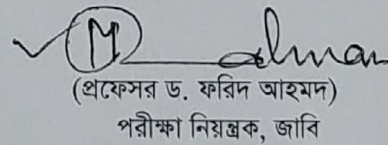 (প্রফেসর ড. ফরিদ আহমদ)
পরীক্ষা নিয়ন্ত্রক, জাবি